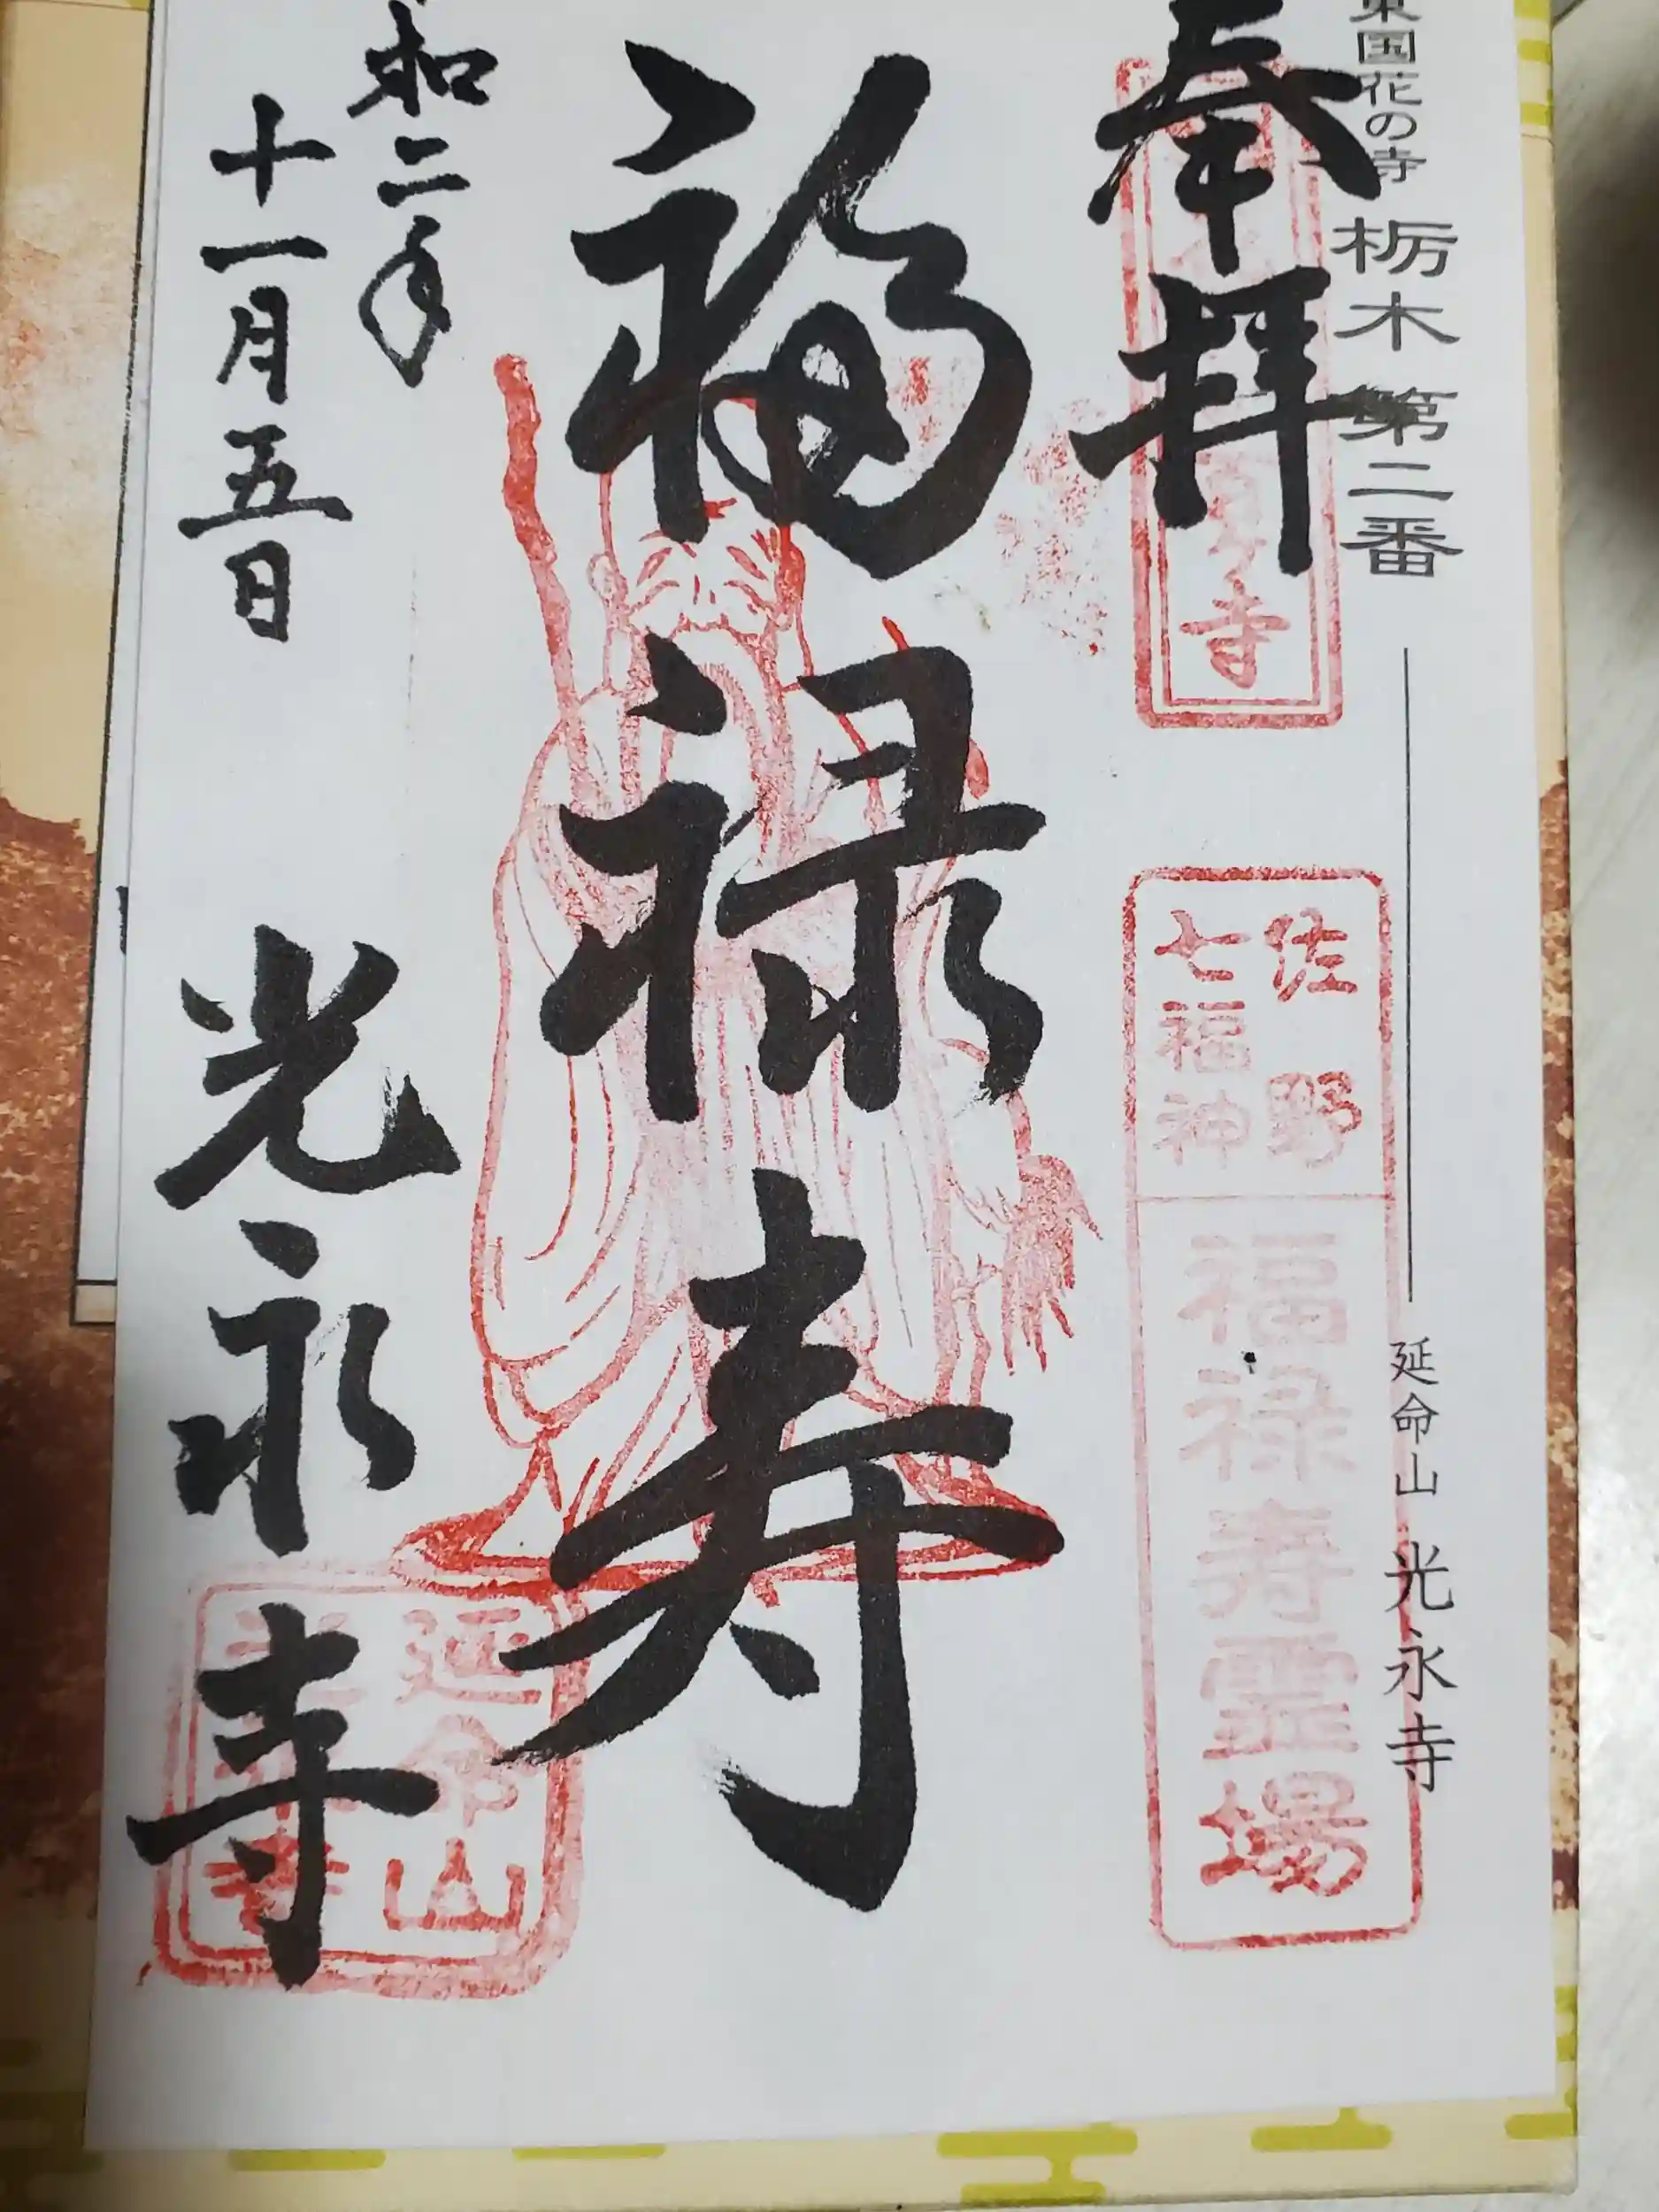 東国花の寺 栃木 第二番
延命山 光永寺
奉拝
寺
佐野
七福神
福禄寿霊場
福禄寿
和二年
十一月五日
光永寺
延命山
光永寺